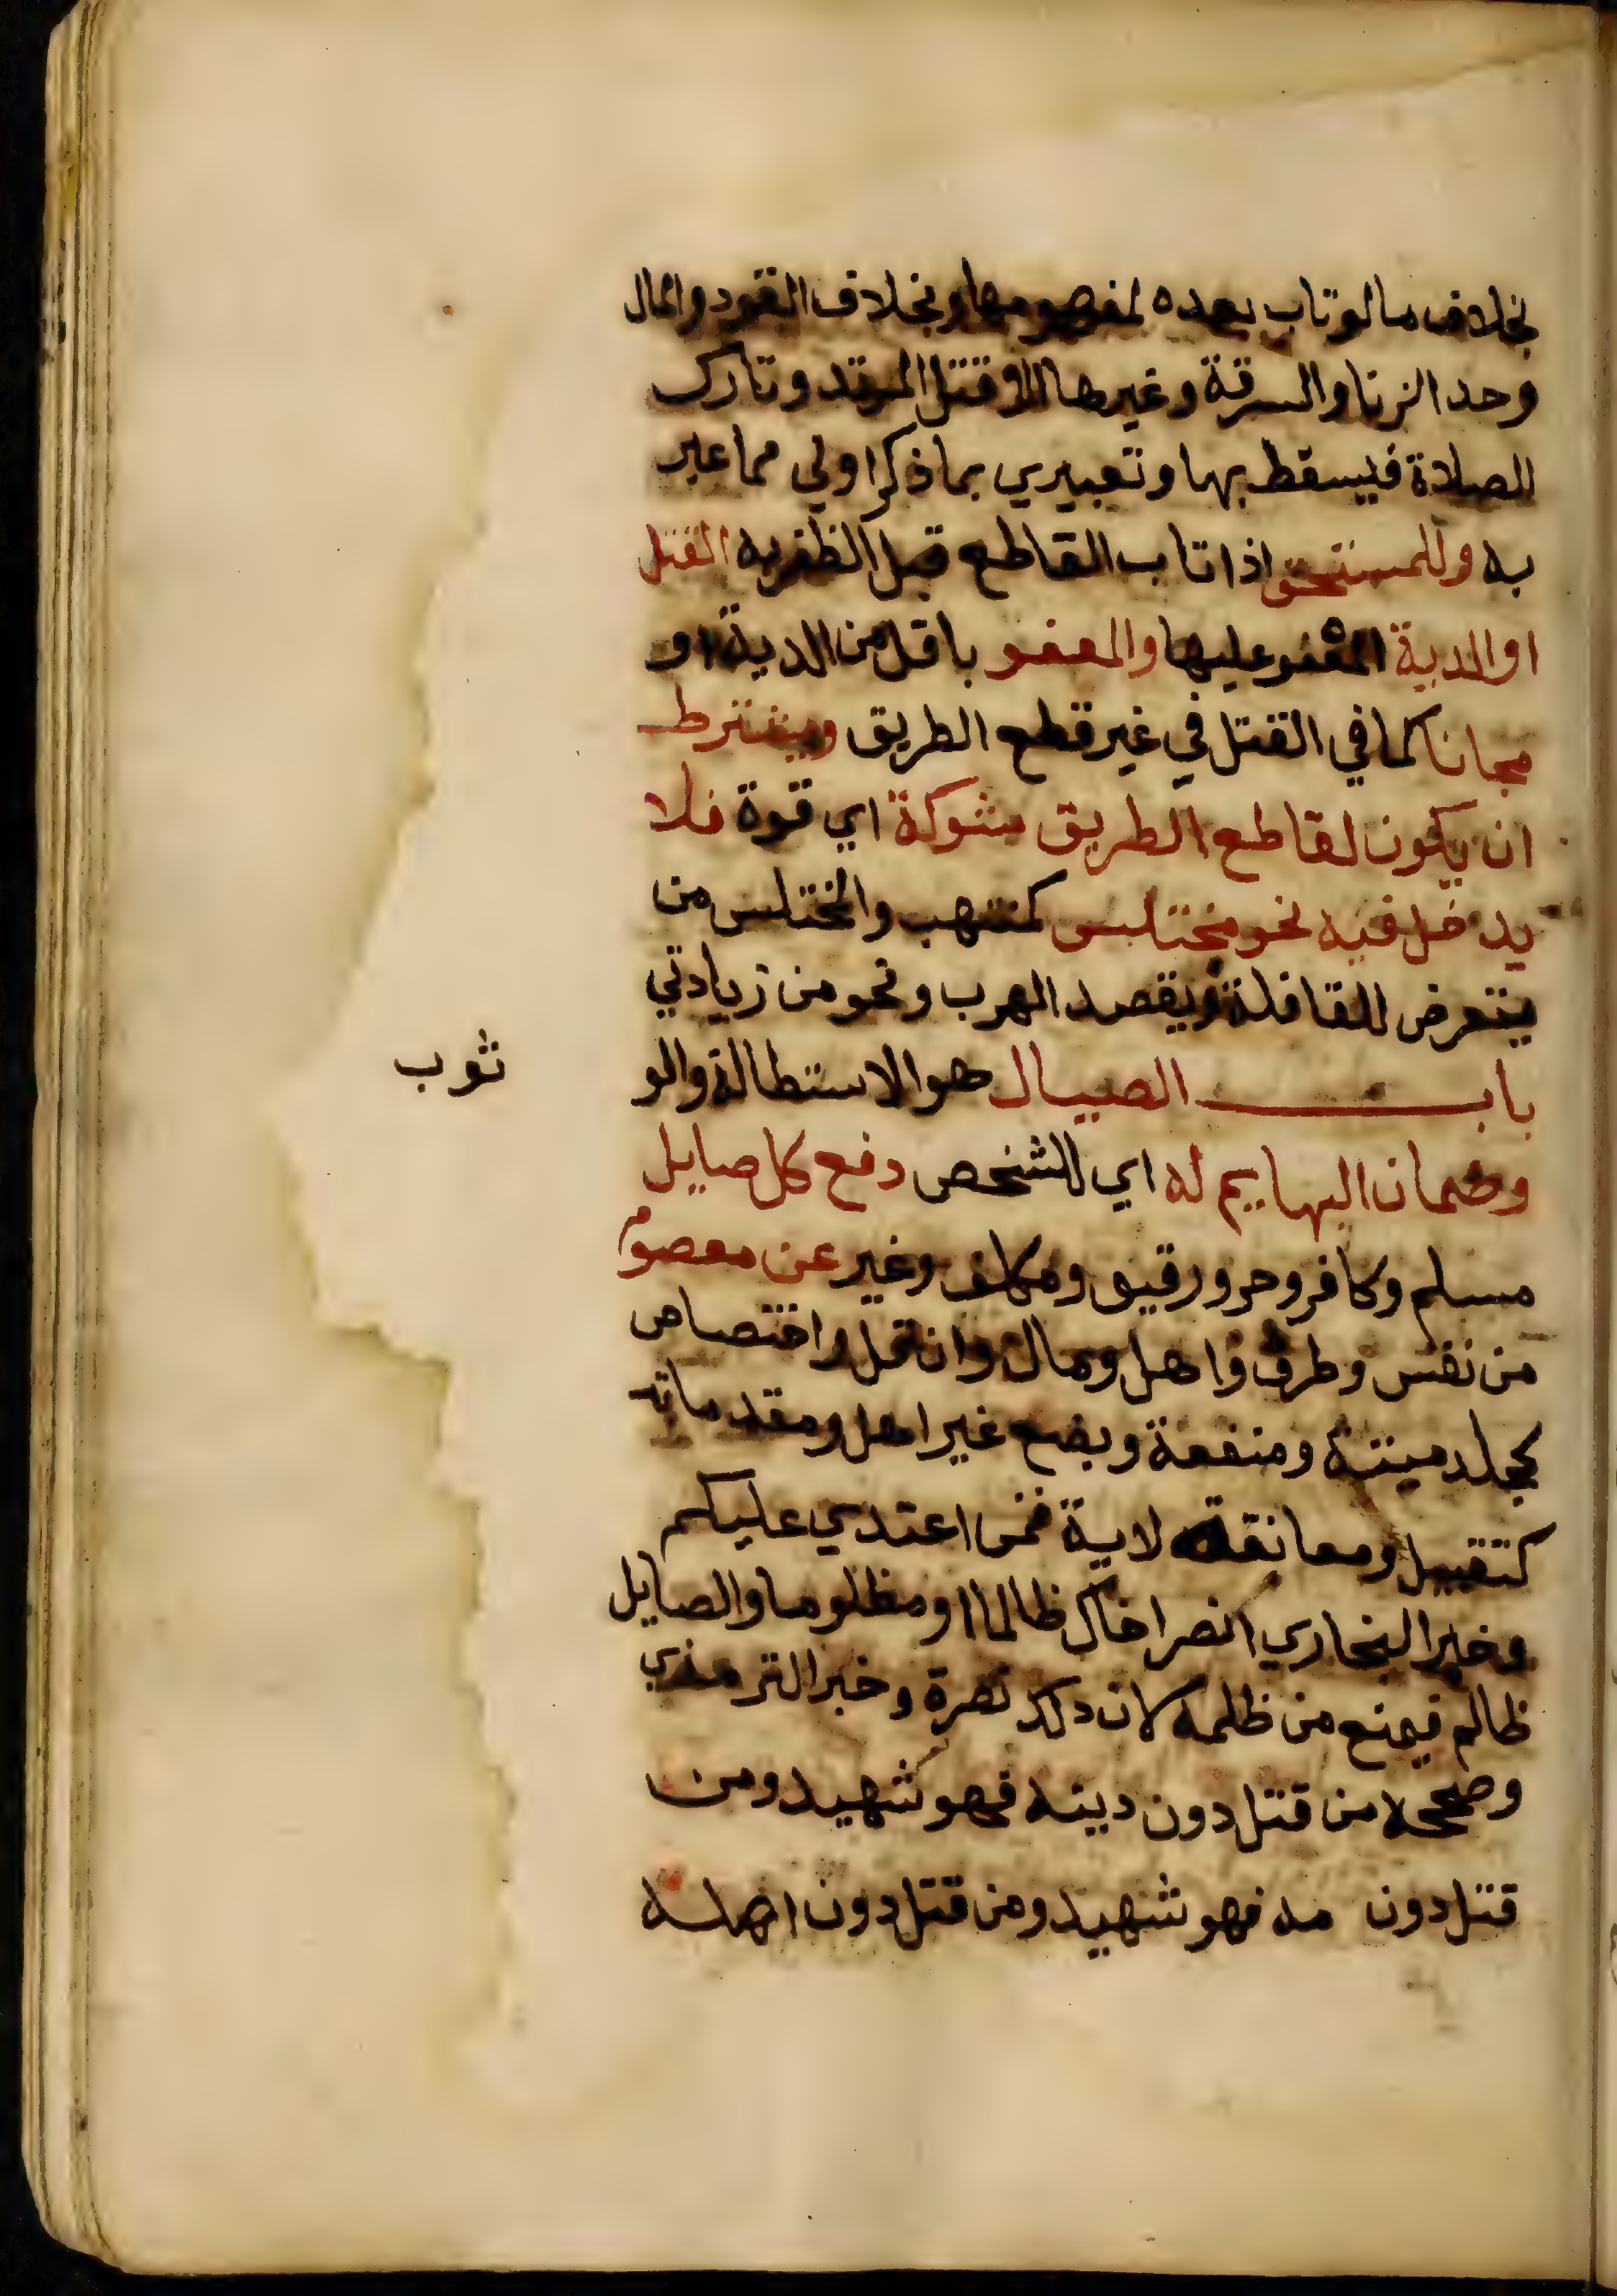 بخلاف ما لو تاب بعده لمفهومها وبخلاف القود والمال
وحد الزنا والسرقة وغيرها الا قتل المرتد وتارك
الصلاة فيسقط بها وتعبيري بما ذكر اولي مما عبر
به وللمستحق اذا تاب القاطع قبل الظفر به القتل
او الدية المعفو عليها والعفو باقل من الدية او
مجانا كما في القتل في غير قطع الطريق ويشترط
ان يكون لقاطع الطريق شوكة اي قوة فلا
يدخل فيه نحو مختلس كمنتهب والمختلس من
يتعرض للقافلة ويقصد الهرب ونحو من زيادتي
باب الصيال هو الاستطالة والو
ثوب
وضمان البهايم له اي للشخص دفع كل صايل
مسلم وكافر وحر ورقيق ومكلف وغير عن معصوم
من نفس وطرف واهل ومال وان قل واختصاص
كجلد ميتة ومنفعة وبضع غير اهل ومقدماته
كتقبيل ومعانقة لاية فمن اعتدي عليكم
وخبر البخاري انصر اخاك ظالما او مظلوما والصايل
ظالم فيمنع من ظلمه لان ذلك نصرة وخبر الترمذي
وصححه من قتل دون دينه فهو شهيد ومن
قتل دون مه فهو شهيد ومن قتل دون اهله